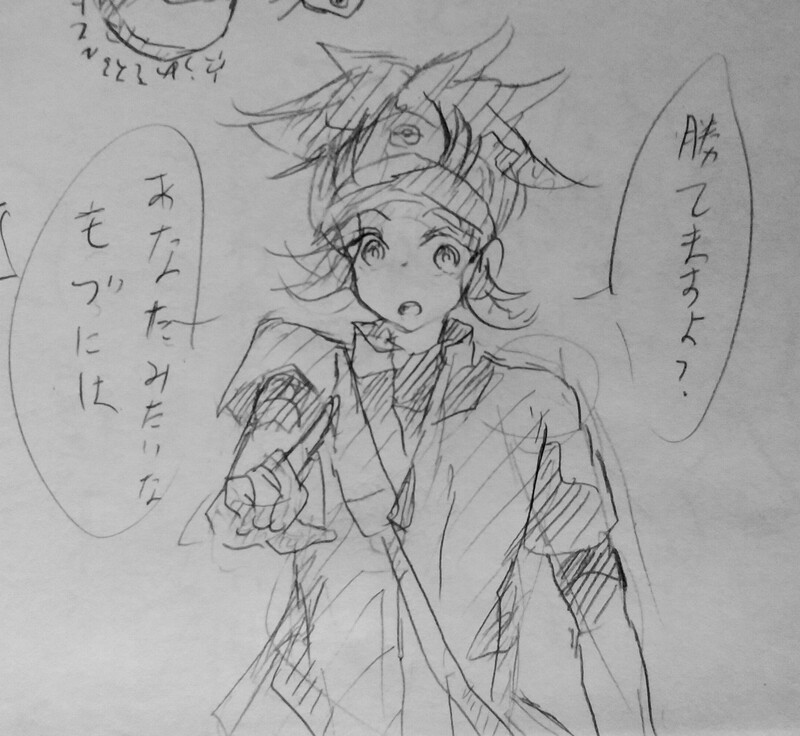 勝てますよ?
あなたみたいな
もづには